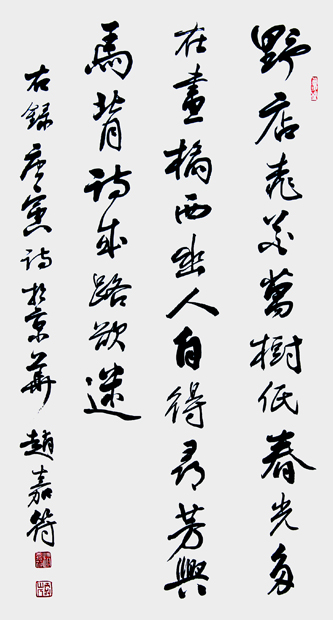 野店桃花萬樹低春光多
在畫橋西幽人自得尋芳興
馬背詩成路欲迷
右錄唐寅詩於京華 趙嘉符